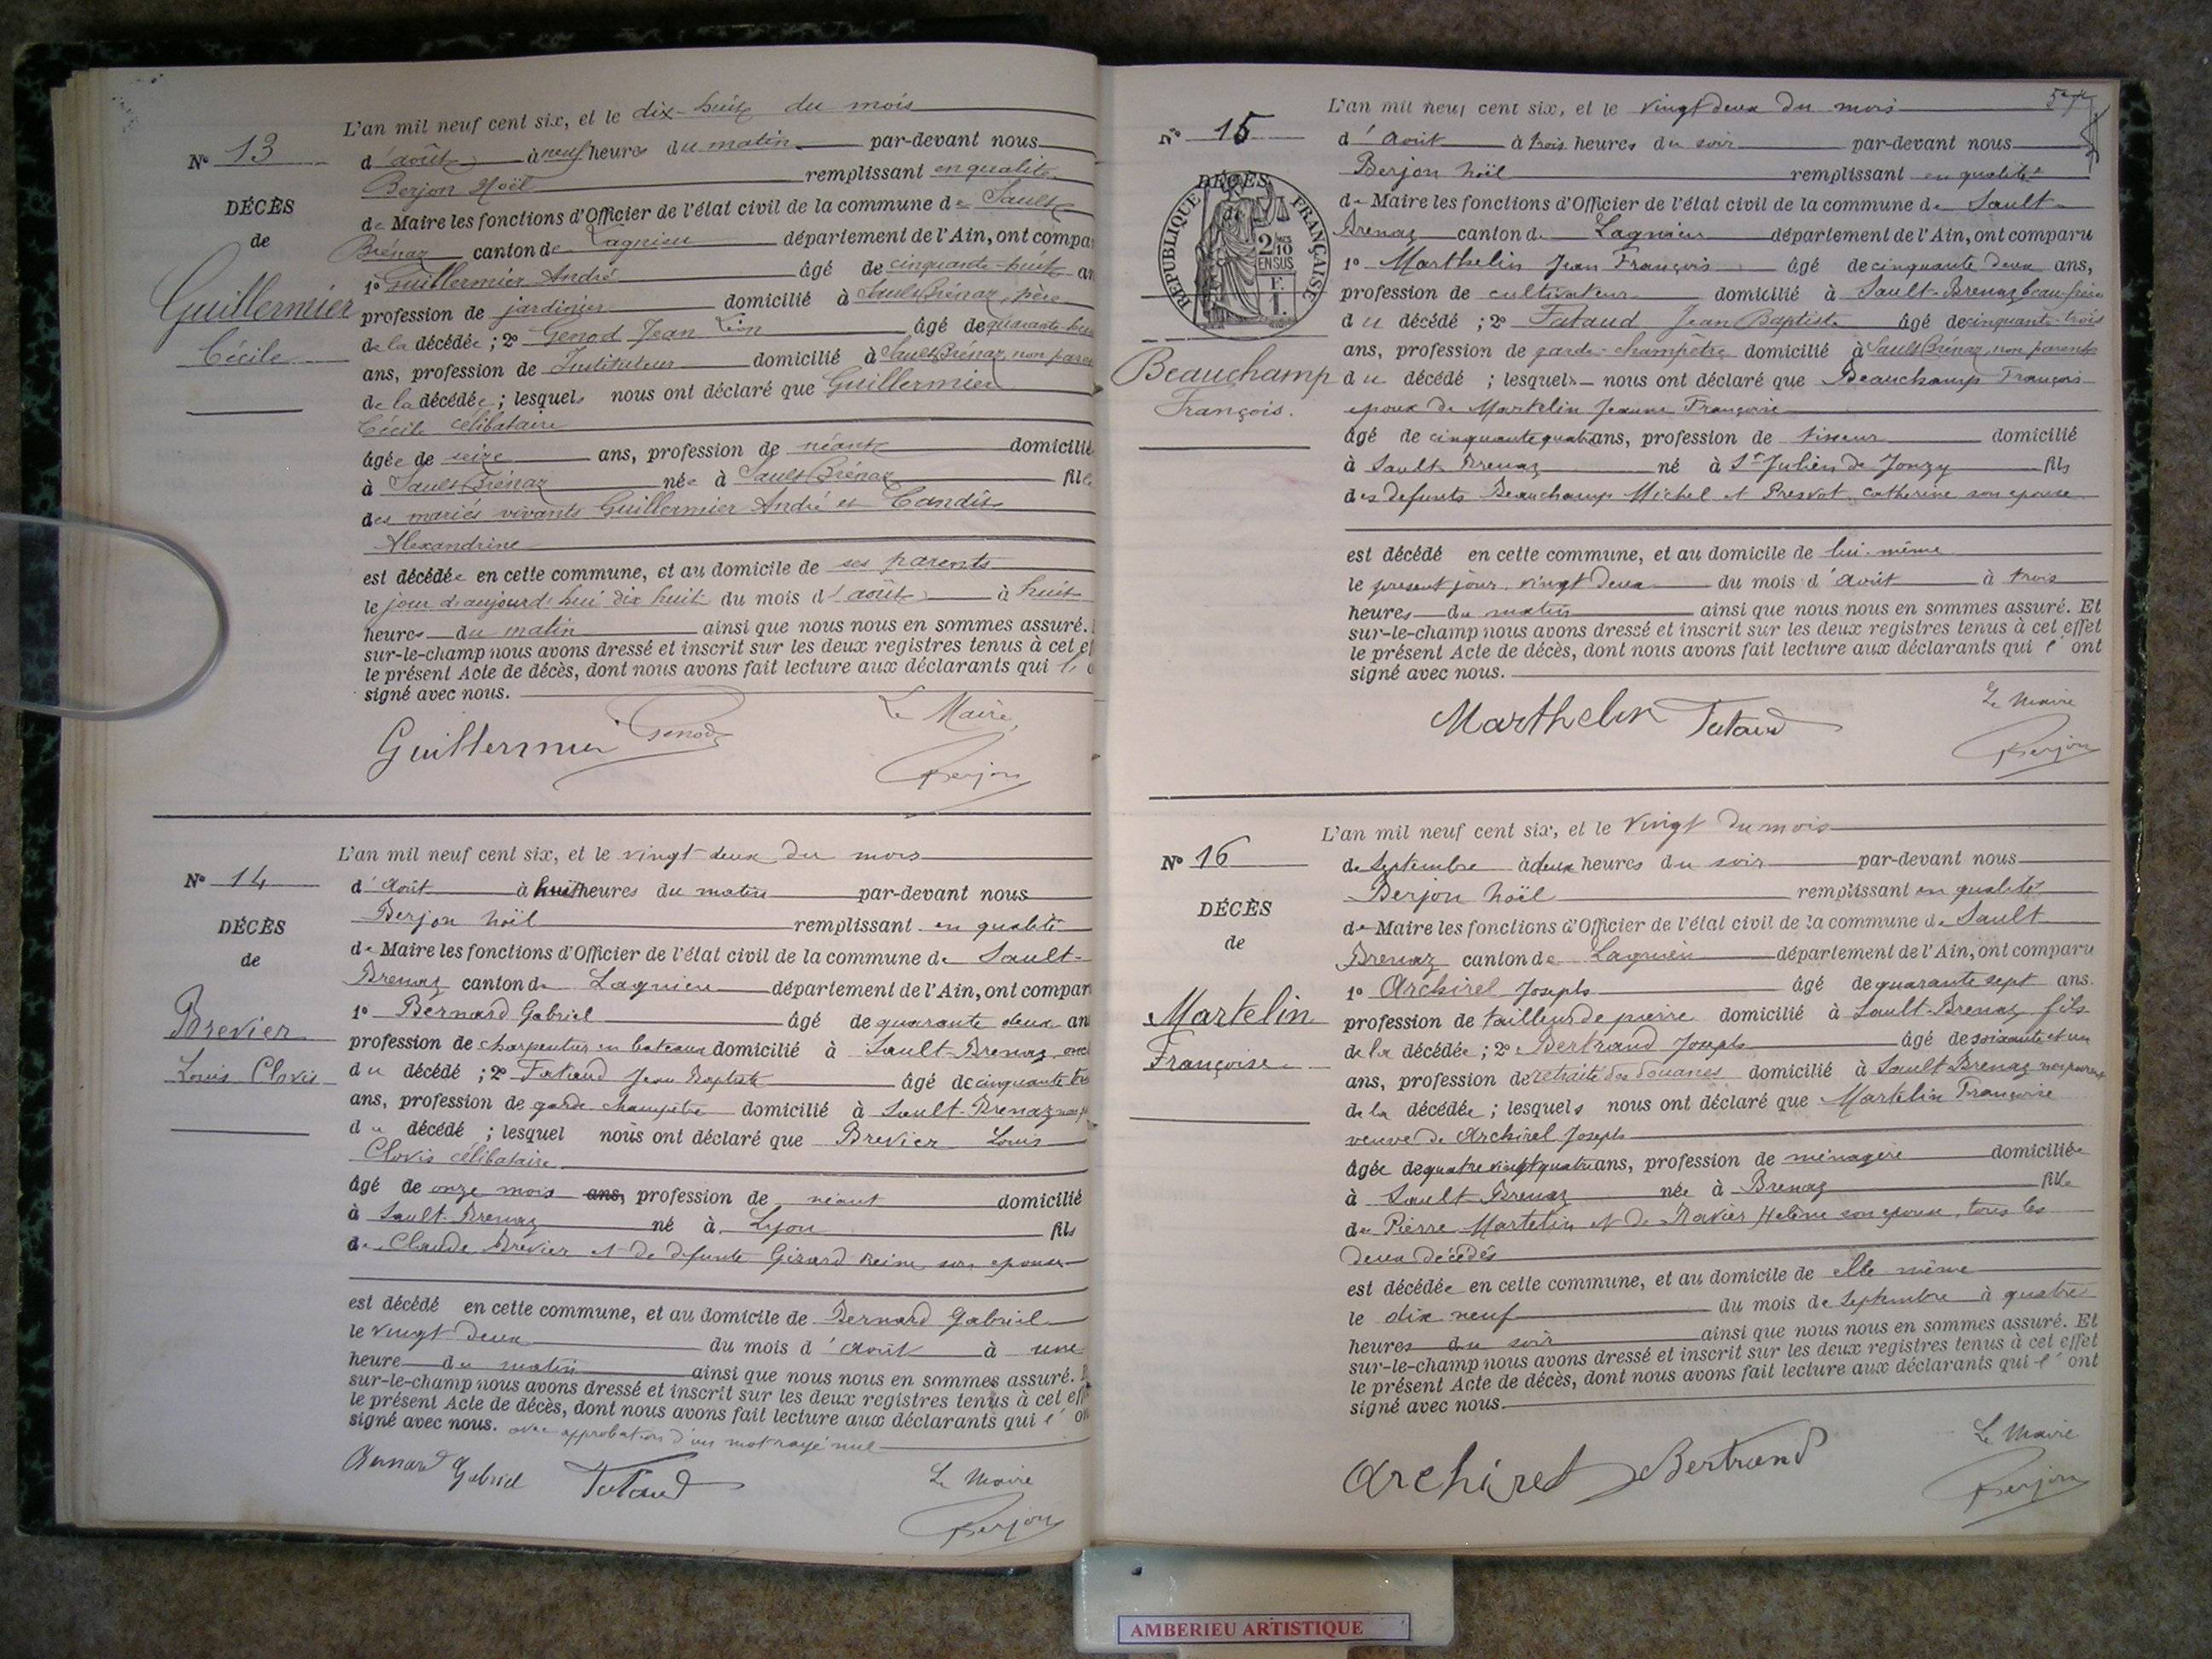 L'an mil neuf cent six, et le dix-huit du mois
N° 13
d'août à neuf heures du matin par-devant nous
Berjon Noël remplissant en qualité
DÉCÈS
de Maire les fonctions d'Officier de l'état civil de la commune de Sault
de
Brénaz canton de Lagnieu département de l'Ain, ont compa
1° Guillermier André âgé de cinquante-huit an
Guillermier
profession de jardinier domicilié à Sault-Brénaz, père
de la décédée ; 2° Genod Jean Léon âgé de quarante
Cécile
ans, profession de Instituteur domicilié à Sault-Brénaz, non paren
de la décédée ; lesquels nous ont déclaré que Guillermier
Cécile célibataire
âgée de seize ans, profession de néant domicilié
à Sault-Brénaz née à Sault-Brénaz fille
des mariés vivants Guillermier André et Candis
Alexandrine
est décédée en cette commune, et au domicile de ses parents
le jour d'aujourd'hui dix huit du mois d'août à huit
heures du matin ainsi que nous nous en sommes assuré.
sur-le-champ nous avons dressé et inscrit sur les deux registres tenus à cet ef
le présent Acte de décès, dont nous avons fait lecture aux déclarants qui l'o
signé avec nous.
Le Maire,
Guillermier Genod
Berjon
L'an mil neuf cent six, et le vingt-deux du mois
N° 14
d'août à huit heures du matin par-devant nous
Berjon Noël remplissant en qualité
DÉCÈS
de Maire les fonctions d'Officier de l'état civil de la commune de Sault-
de
Brenaz canton de Lagnieu département de l'Ain, ont compar
1° Bernard Gabriel âgé de quarante deux an
Brevier
profession de charpentier en bateaux domicilié à Sault-Brenaz, oncl
Louis Clovis
du décédé ; 2° Fataud Jean Baptiste âgé de cinquante tro
ans, profession de garde champêtre domicilié à Sault-Brenaz non p
du décédé ; lesquel nous ont déclaré que Brevier Louis
Clovis célibataire
âgé de onze mois ans, profession de néant domicilié
à Sault-Brenaz né à Lyon fils
de Claude Brevier et de defunte Girard Reine son epouse
est décédé en cette commune, et au domicile de Bernard Gabriel
le vingt deux du mois d'août à une
heure du matin ainsi que nous nous en sommes assuré. E
sur-le-champ nous avons dressé et inscrit sur les deux registres tenus à cet eff
le présent Acte de décès, dont nous avons fait lecture aux déclarants qui l'on
signé avec nous. avec approbation d'un mot rayé nul
Bernard Gabriel Fataud Le Maire
Berjon
L'an mil neuf cent six, et le vingt deux du mois
N° 15
d'août à trois heures du soir par-devant nous
Berjon Noël remplissant en qualité
DÉCÈS
de
RÉPUBLIQUE FRANÇAISE
2/10 EN SUS
F.
1.
de Maire les fonctions d'Officier de l'état civil de la commune de Sault-
Brenaz canton de Lagnieu département de l'Ain, ont comparu
1° Marthelin Jean François âgé de cinquante deux ans,
profession de cultivateur domicilié à Sault-Brenaz beau-frère
du décédé ; 2° Fataud Jean Baptiste âgé de cinquante trois
ans, profession de garde-champêtre domicilié à Sault-Brénaz, non parents
Beauchamp
du décédé ; lesquels nous ont déclaré que Beauchamp François
François.
epoux de Martelin Jeanne Françoise
âgé de cinquante quatre ans, profession de tisseur domicilié
à Sault-Brenaz né à St Julien de Jonzy fils
des defunts Beauchamp Michel et Presvot catherine son epouse
est décédé en cette commune, et au domicile de lui-même
le present jour vingt deux du mois d'août à trois
heures du matin ainsi que nous nous en sommes assuré. Et
sur-le-champ nous avons dressé et inscrit sur les deux registres tenus à cet effet
le présent Acte de décès, dont nous avons fait lecture aux déclarants qui l'ont
signé avec nous.
Le Maire
Marthelin Fataud
Berjon
L'an mil neuf cent six, et le vingt du mois
N° 16
de Septembre à deux heures du soir par-devant nous
Berjon Noël remplissant en qualité
DÉCÈS
de Maire les fonctions d'Officier de l'état civil de la commune de Sault
de
Brenaz canton de Lagnieu département de l'Ain, ont comparu
1° Archirel Joseph âgé de quarante sept ans.
Martelin
profession de tailleur de pierre domicilié à Sault-Brenaz fils
Françoise
de la décédée ; 2° Bertrand Joseph âgé de soixante et un
ans, profession de retraité des douanes domicilié à Sault-Brenaz non parent
de la décédée ; lesquels nous ont déclaré que Martelin Françoise
veuve de Archirel Joseph
âgée de quatre vingt quatre ans, profession de ménagère domiciliée
à Sault-Brenaz née à Brenaz fille
de Pierre Martelin et de Ravier Helène son epouse, tous les
deux décédés
est décédée en cette commune, et au domicile de elle même
le dix neuf du mois de Septembre à quatre
heures du soir ainsi que nous nous en sommes assuré. Et
sur-le-champ nous avons dressé et inscrit sur les deux registres tenus à cet effet
le présent Acte de décès, dont nous avons fait lecture aux déclarants qui l'ont
signé avec nous.
Le Maire
Archirel Bertrand
Berjon
AMBERIEU ARTISTIQUE